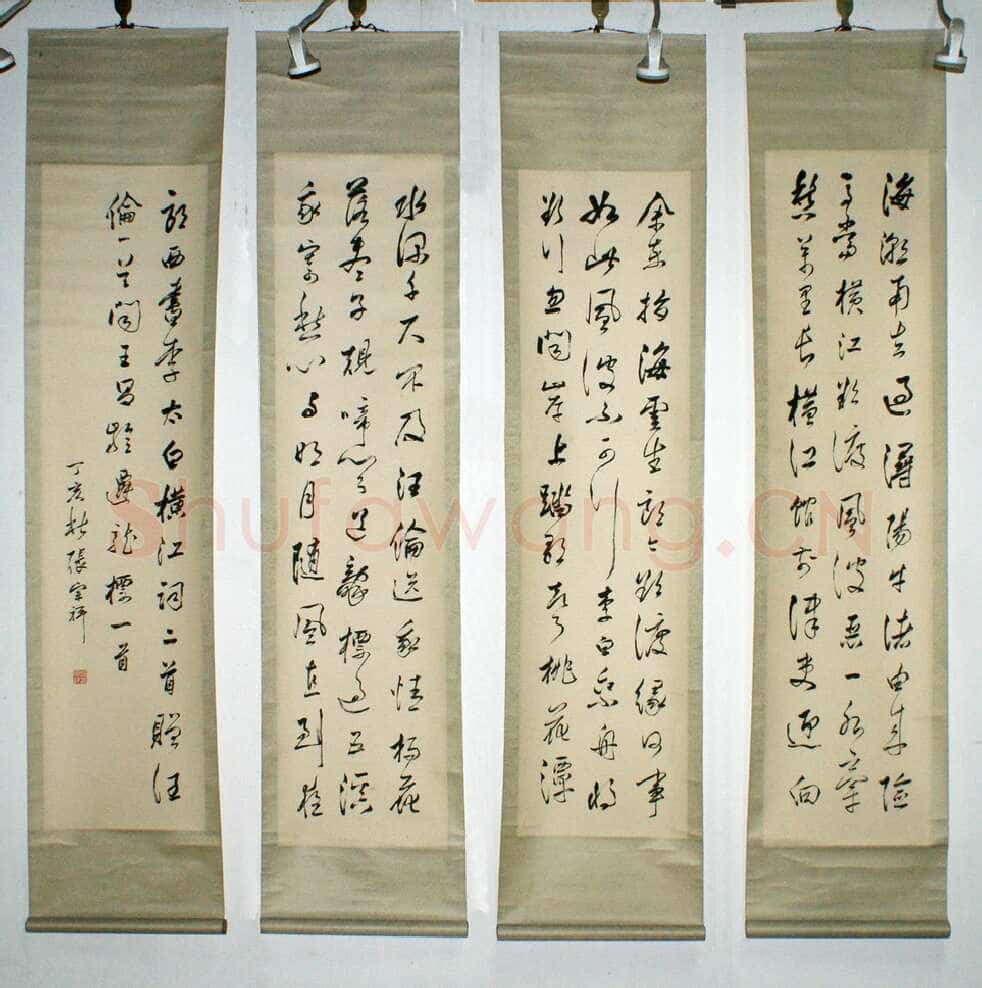 海潮南去過潯陽牛渚由來險
馬當橫江欲渡風波惡一水牽
愁萬里長橫江館前津吏迎向
余東指海雲生郎今欲渡緣何事
如此風波不可行李白乘舟將
欲行忽聞岸上踏歌聲桃花潭
水深千尺不及汪倫送我情楊花
落盡子規啼聞道龍標過五溪
我寄愁心與明月隨風直到夜
郎西書李太白橫江詞二首贈汪
倫一首聞王昌齡遷龍標一首
丁亥秋張宗祥
Shufawang.CN